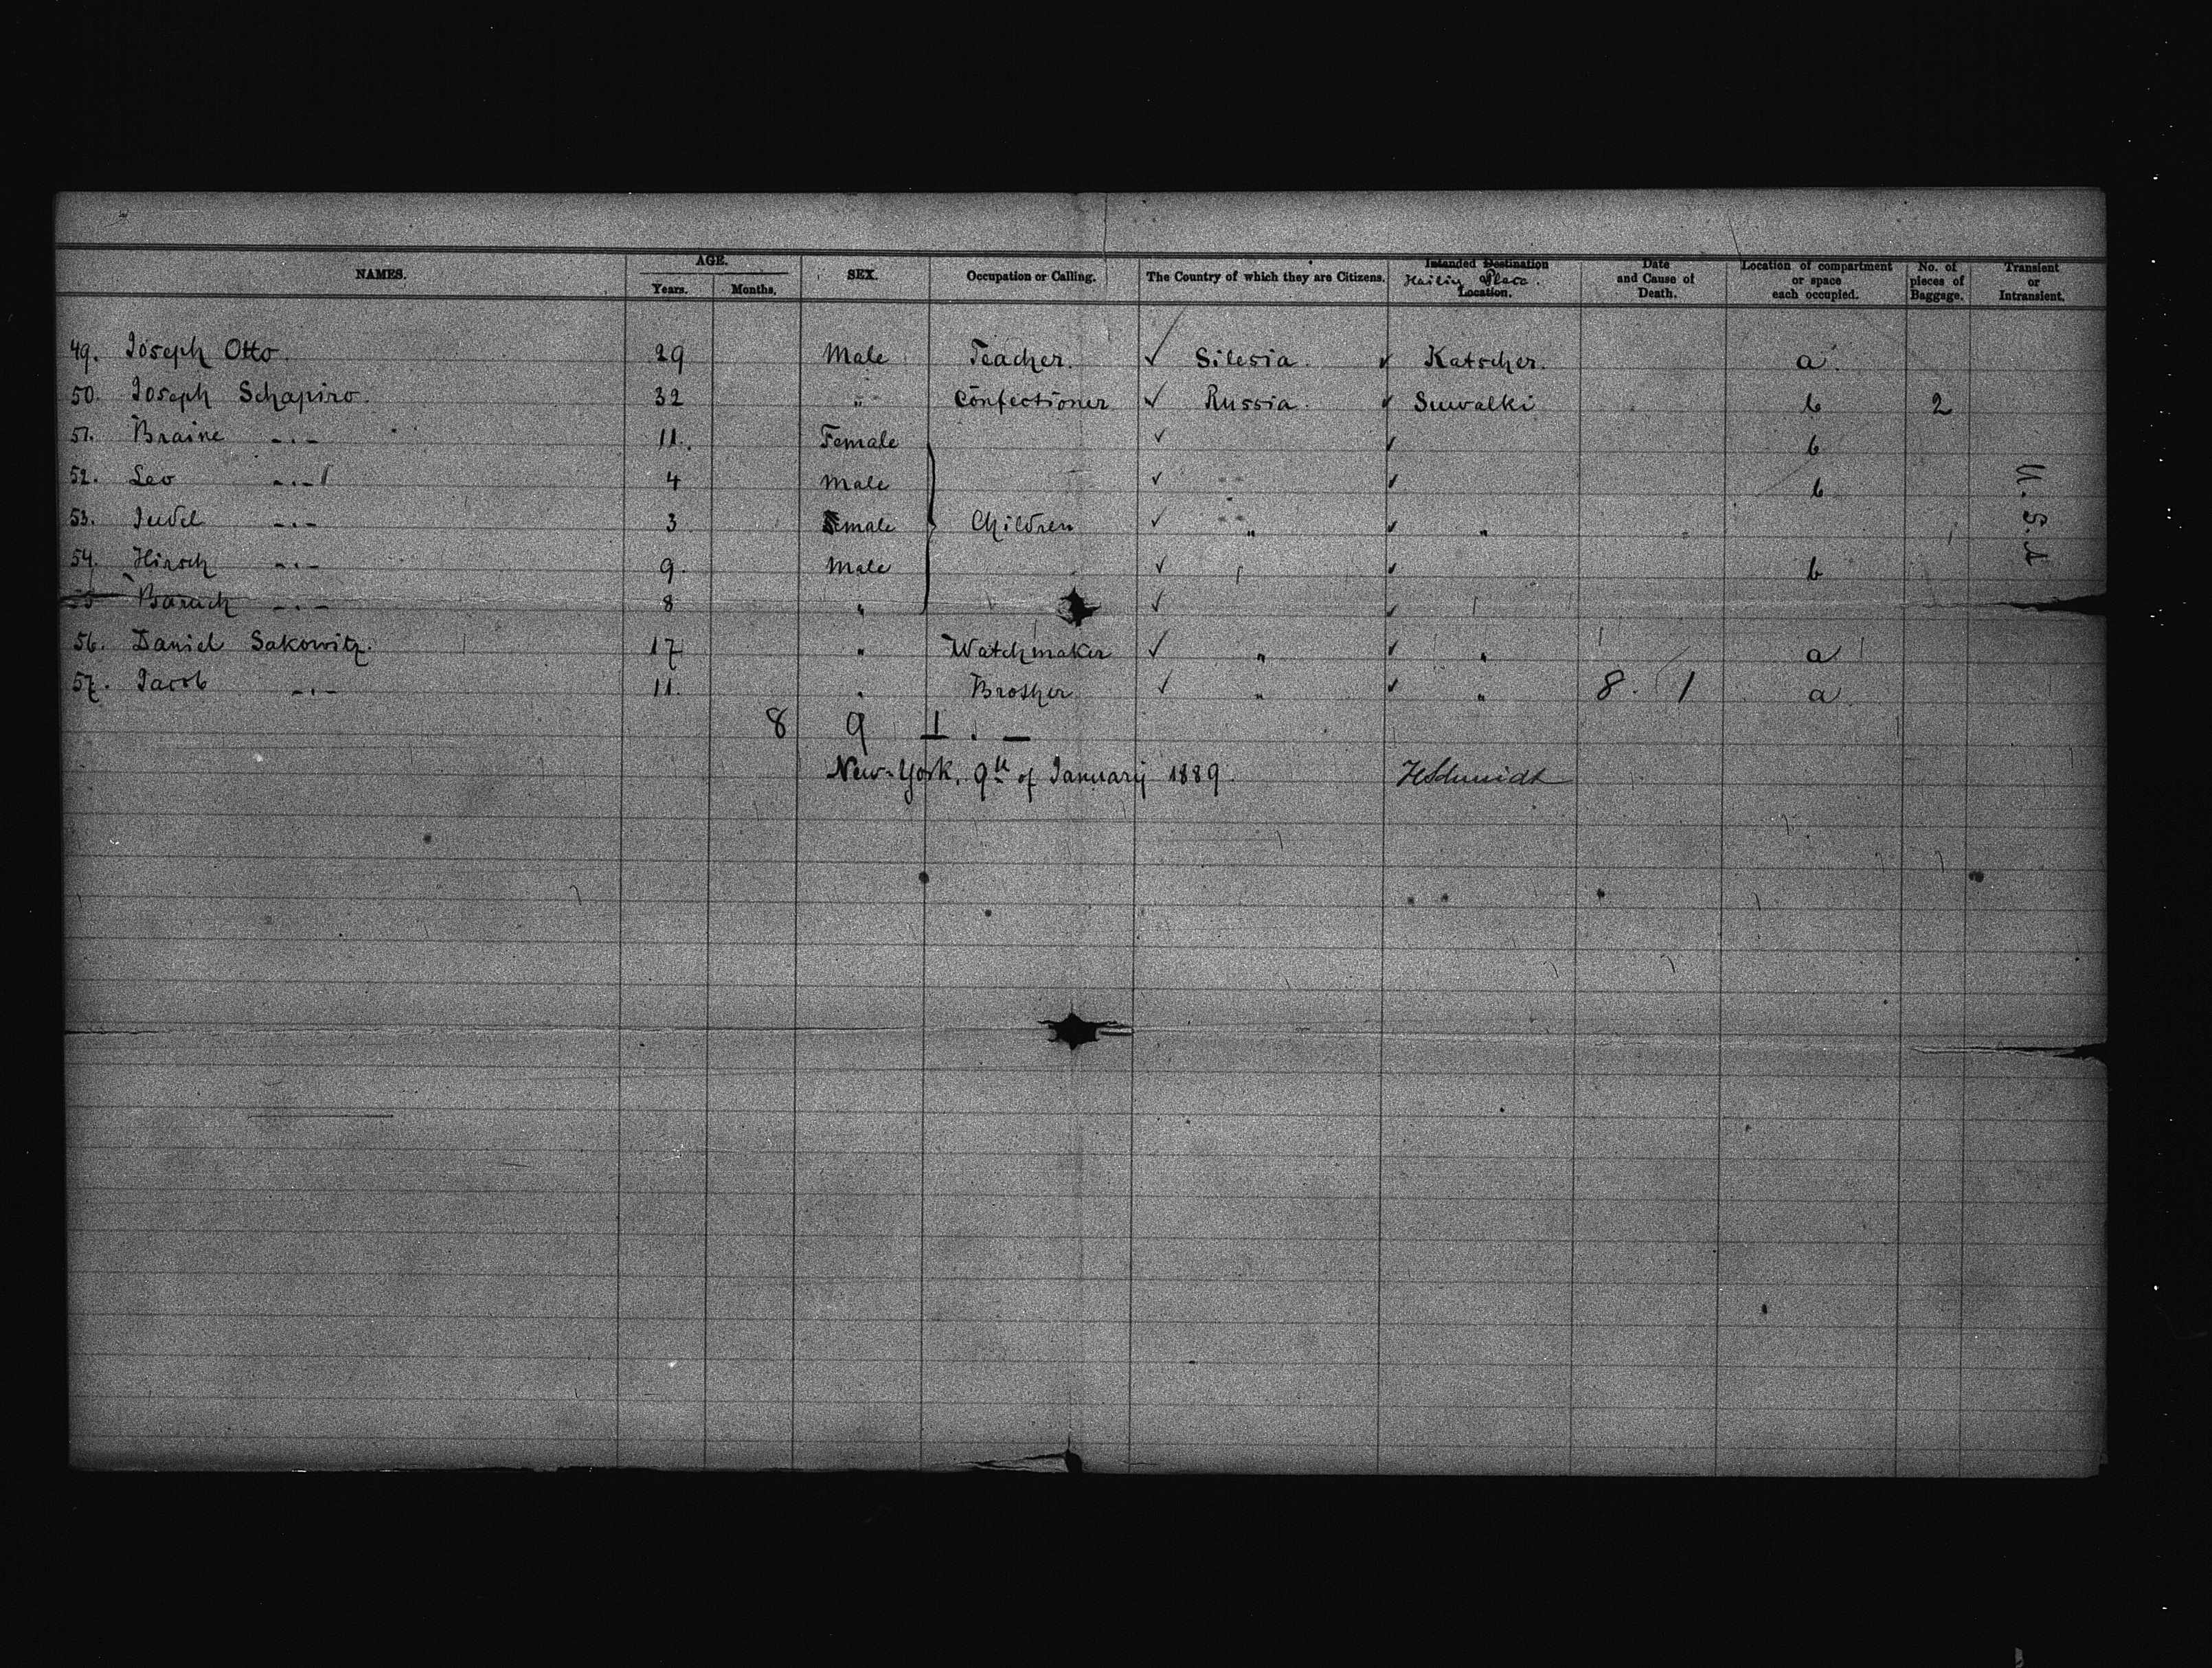 NAMES. AGE. Years. Months. SEX. Occupation or Calling. The Country of which they are Citizens. Intended Destination Hailing Place. Location. Date and Cause of Death. Location of compartment or space each occupied. No. of pieces of Baggage. Transient or Intransient.
49. Joseph Otto. 29 Male Teacher. ✓ Silesia. ✓ Katscher. a.
50. Joseph Schapiro. 32 " Confectioner ✓ Russia. ✓ Suwalki b 2
51. Braine -.- 11. Female ✓ ✓ b
52. Leo -.- 4 Male ✓ ✓ b
53. Judel -.- 3 male Children ✓ " ✓ "
54. Hirsch -.- 9. Male ✓ ✓ b
55 Baruch -.- 8 " ✓ ✓
56. Daniel Sakowitz. 17 " Watchmaker ✓ " ✓ " a
57. Jacob -.- 11. " Brother ✓ " ✓ " 8. 1 a
U.S.A
8 9 1 . —
New-York, 9th of January 1889. HSchmidt